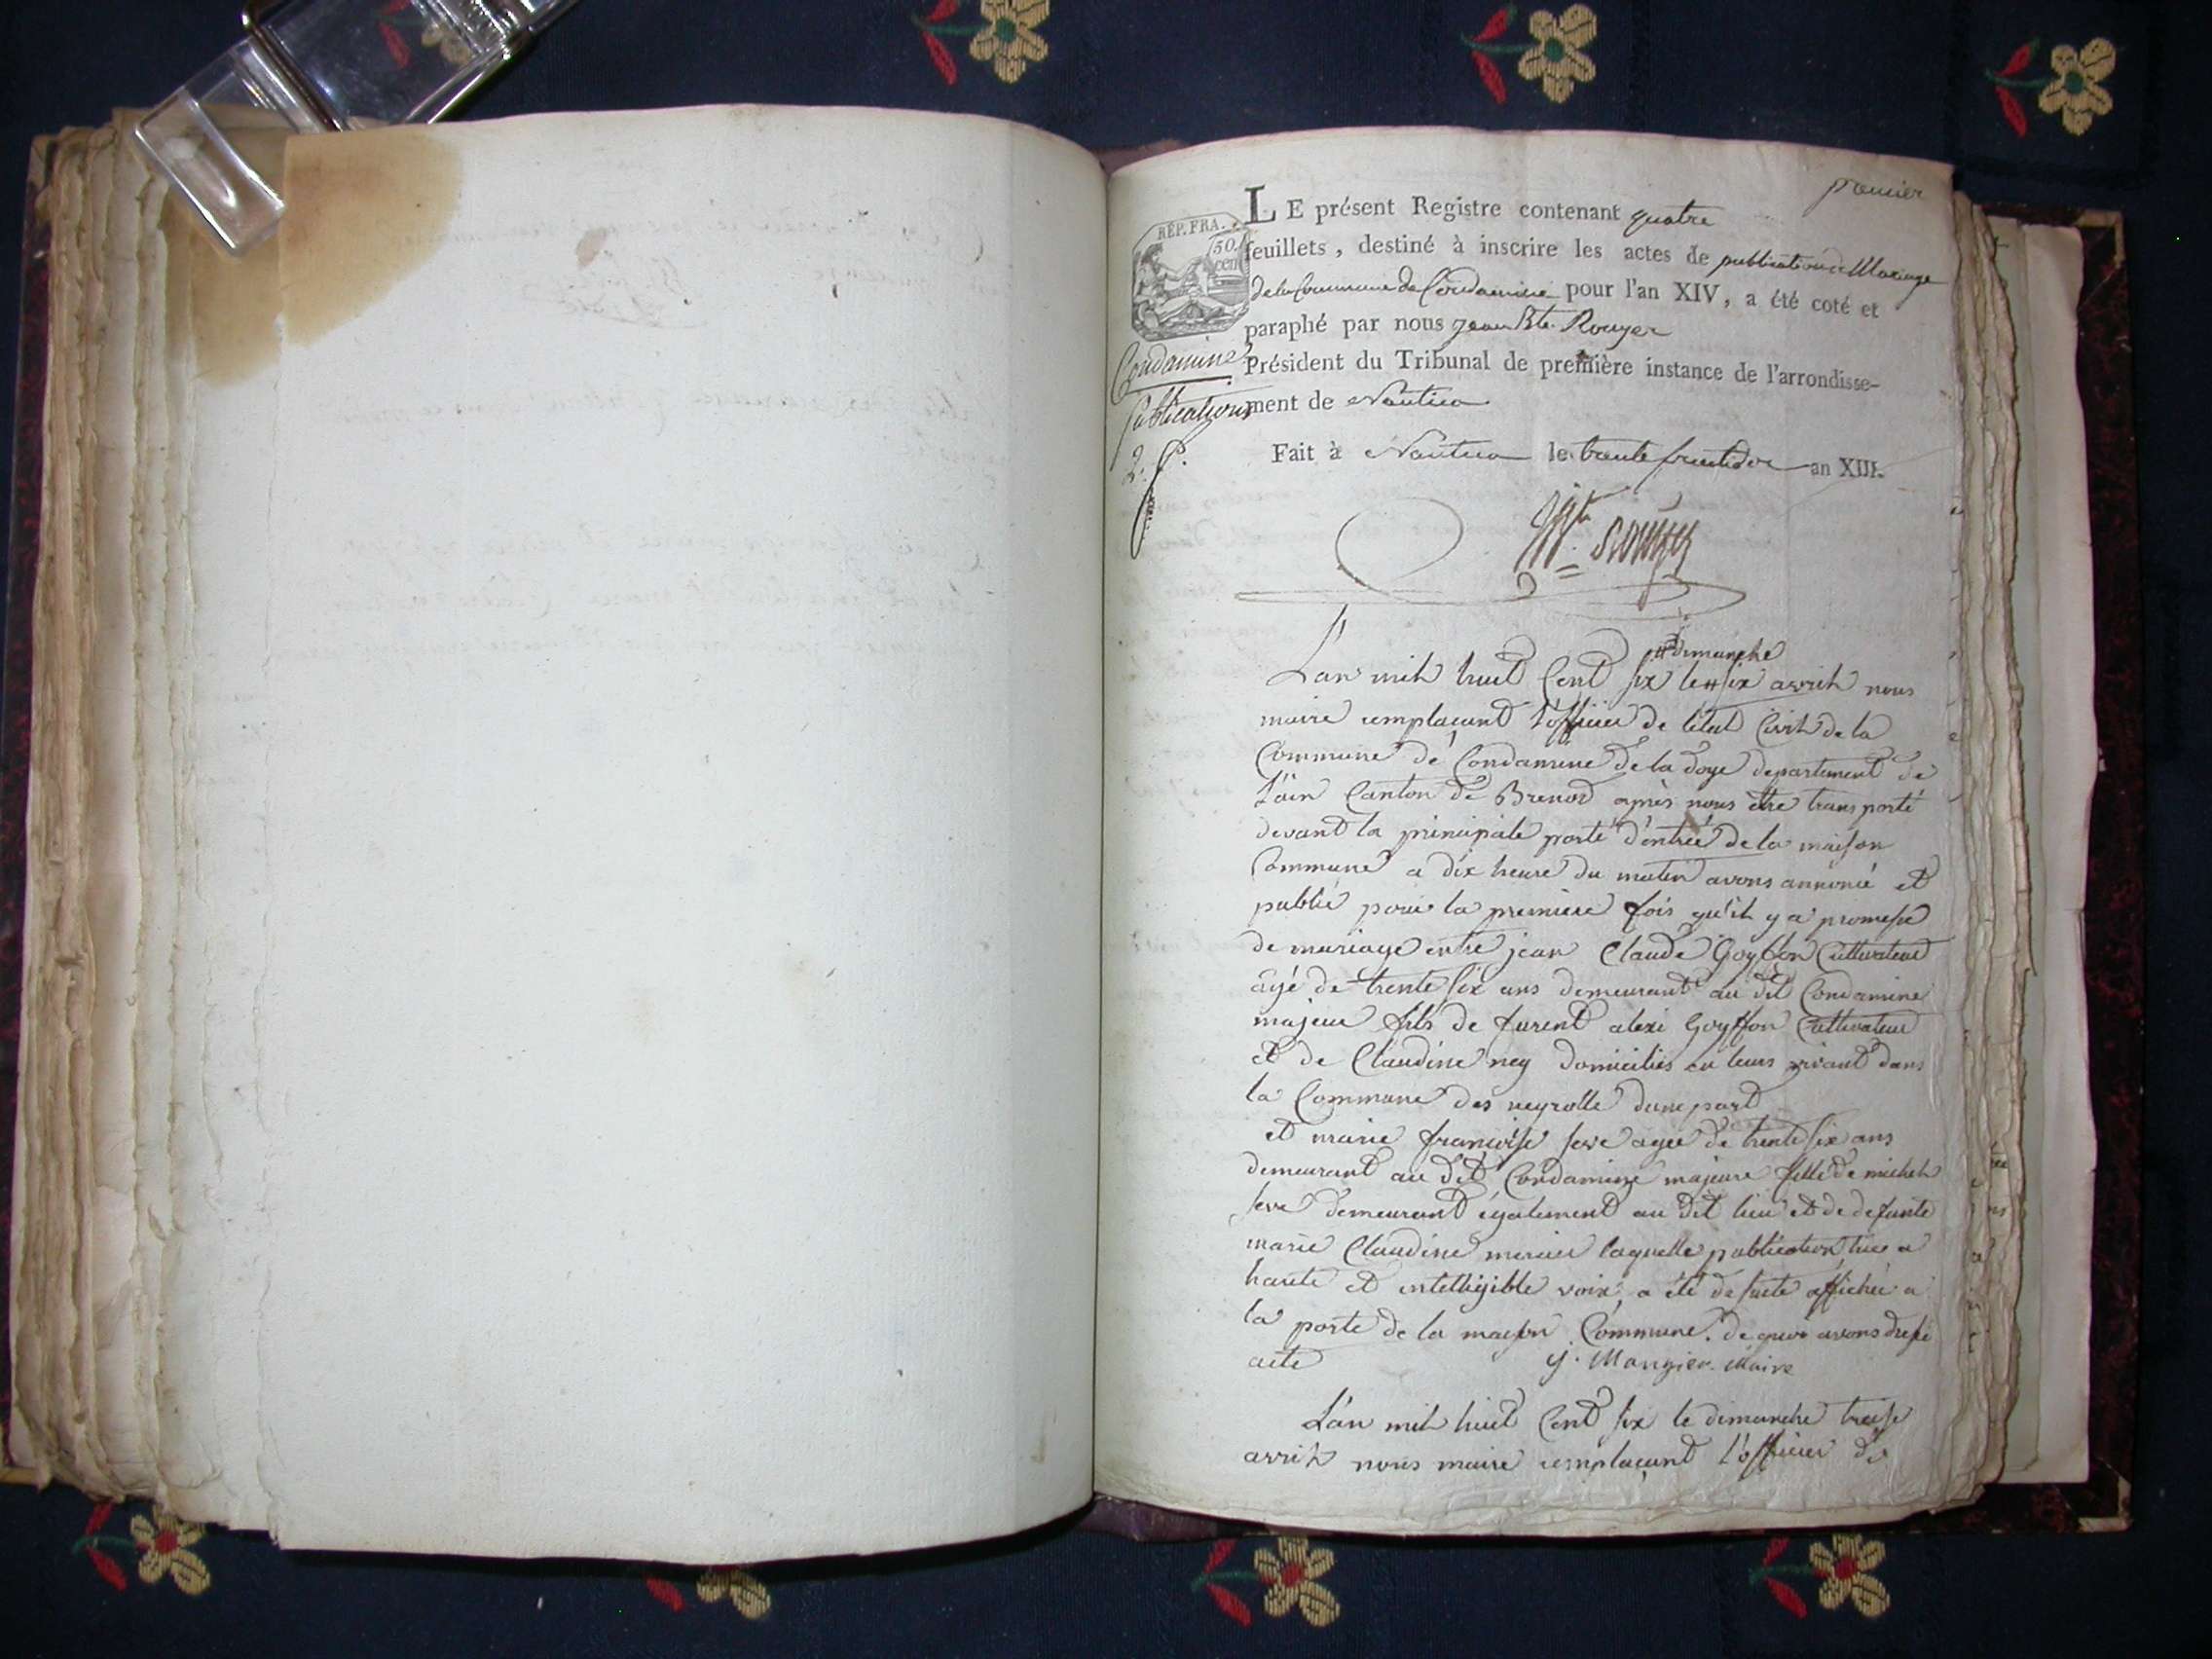 premier
LE présent Registre contenant quatre
RÉP. FRA.
50.
cen
feuillets, destiné à inscrire les actes de publication de Mariage
de la Commune de Condamine pour l'an XIV, a été coté et
paraphé par nous jean Bte. Rouyer
Condamine
Président du Tribunal de première instance de l'arrondisse-
publications
ment de Nantua
Fait à Nantua le trente fructidor an XIII.
2. P.
Rouyer
# dimanche
L'an mil huit Cent six le # six avril nous
maire remplaçant l'officier de létat Civil de la
Commune de Condamine de la doye departement de
L'ain Canton de Brenod après nous être transporté
devant la principale porte d'entrée de la maison
Commune a dix heure du matin avons annoncé et
publié pour la premiere fois qu'il y a promesse
de mariage entre jean Claude Goyffon Cultivateur
agé de trente six ans demeurant au dit Condamine
majeur fils de furent alexi Goyffon Cultivateur
et de Claudine ney domiciliés en leurs vivant dans
la Commune des neyrolle dune part
et marie françoise seve agee de trente six ans
demeurant au dit Condamine majeure fille de michel
seve demeurant également au dit lieu et de defunte
marie Claudine mercier laquelle publication lue a
haute et intelligible voix a été de suite affichée a
la porte de la maison Commune. de quoi avons dressé
acte j. Mangier Maire
L'an mil huit Cent six le dimanche treise
avril nous maire remplaçant l'officier de